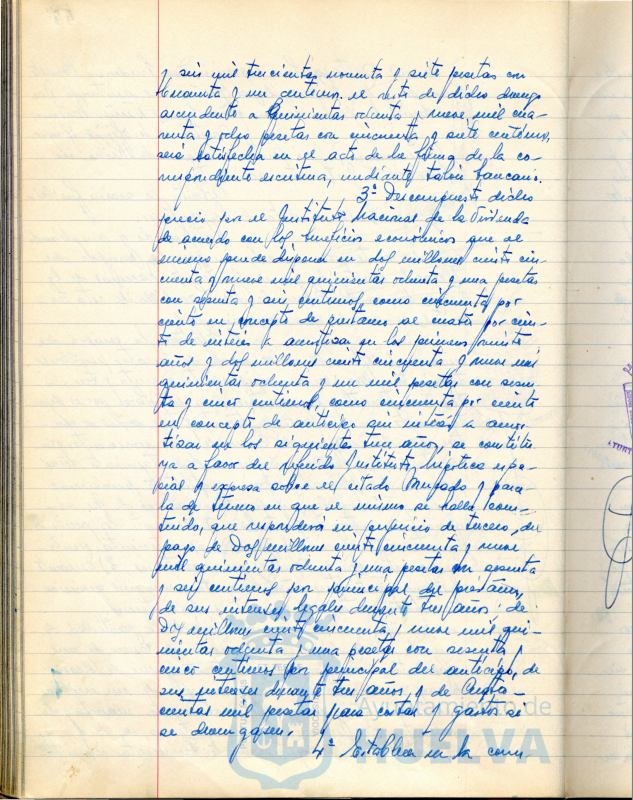 y seis mil trescientas noventa y siete pesetas con
cincuenta y un centimos. el resto de dicho
ascendente a Quinientas ochenta y nueve mil cua-
renta y ocho pesetas con cincuenta y siete centimos,
será satisfecha en el acto de la firma de la co-
rrespondiente escritura, mediante talón bancario.
3º Descompuesto dicho
precio por el Instituto Nacional de la Vivienda
de acuerdo con los beneficios económicos que el
mismo puede dispensar en dos millones ciento cin-
cuenta y nueve mil quinientas ochenta y una pesetas
con sesenta y seis centimos, como cincuenta por
ciento en concepto de prestamo al cuatro por cien-
to de interés a amortizar en los primeros veinte
años y dos millones ciento cincuenta y nueve mil
quinientas ochenta y un mil pesetas con sesen-
ta y cinco centimos, como cincuenta por ciento
en concepto de anticipo sin interés a amor-
tizar en los siguientes años, se constitu-
ya a favor del referido Instituto hipoteca espe-
cial y expresa sobre el citado Mercado y parce-
la de terreno en que el mismo se halla cons-
truido, que responderá en perjuicio de tercero, del
pago de Dos millones ciento cincuenta y nueve
mil quinientas ochenta y una pesetas con sesenta
y seis centimos por principal del prestamo,
de sus intereses legales durante tres años; de
Dos millones ciento cincuenta y nueve mil qui-
nientas ochenta y una pesetas con sesenta y
cinco centimos por principal del anticipo, de
sus intereses durante tres años, y de Cuatro-
cientas mil pesetas para costas y gastos si
se devengasen.
4º Establecer en la
Ayuntamiento de
HUELVA